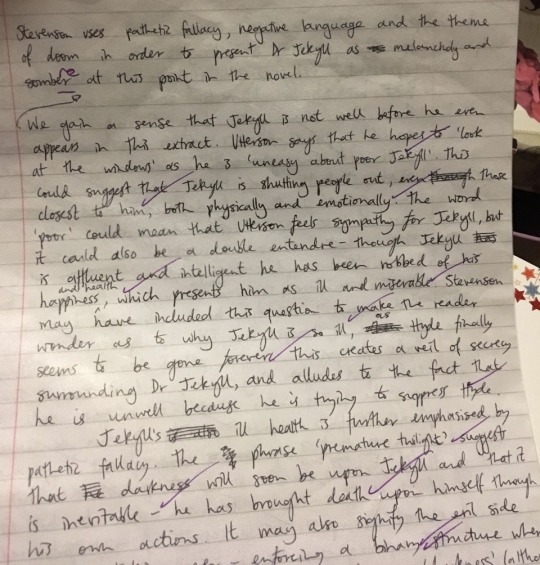 Stevenson uses pathetic fallacy, negative language and the theme
of doom in order to present Dr Jekyll as melancholy and
sombre at this point in the novel.
We gain a sense that Jekyll is not well before he even
appears in this extract. Utterson says that he hopes to 'look
at the windows' as he is 'uneasy about poor Jekyll'. This
could suggest that Jekyll is shutting people out, even those
closest to him, both physically and emotionally. The word
'poor' could mean that Utterson feels sympathy for Jekyll, but
it could also be a double entendre - though Jekyll
is affluent and intelligent he has been robbed of his
and health
happiness, which presents him as ill and miserable. Stevenson
may have included this question to make the reader
wonder as to why Jekyll is so ill, as Hyde finally
seems to be gone forever. This creates a veil of secrecy
surrounding Dr Jekyll, and alludes to the fact that
he is unwell because he is trying to suppress Hyde.
Jekyll's ill health is further emphasised by
pathetic fallacy. The phrase 'premature twilight' suggests
that darkness will soon be upon Jekyll and that it
is inevitable - he has brought death upon himself through
his own actions. It may also signify the evil side
- enforcing a binary structure when
(altho